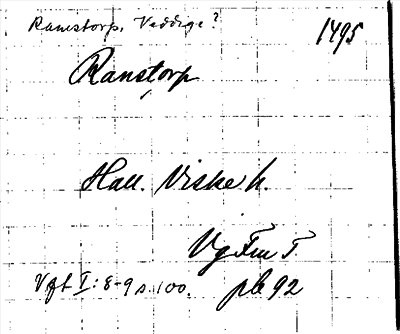 Ramstorp, Veddige?
1495
Ranstorp
Hall. Viske h.
Vg Fm T.
Vgft I: 8-9 s. 100. pl 92